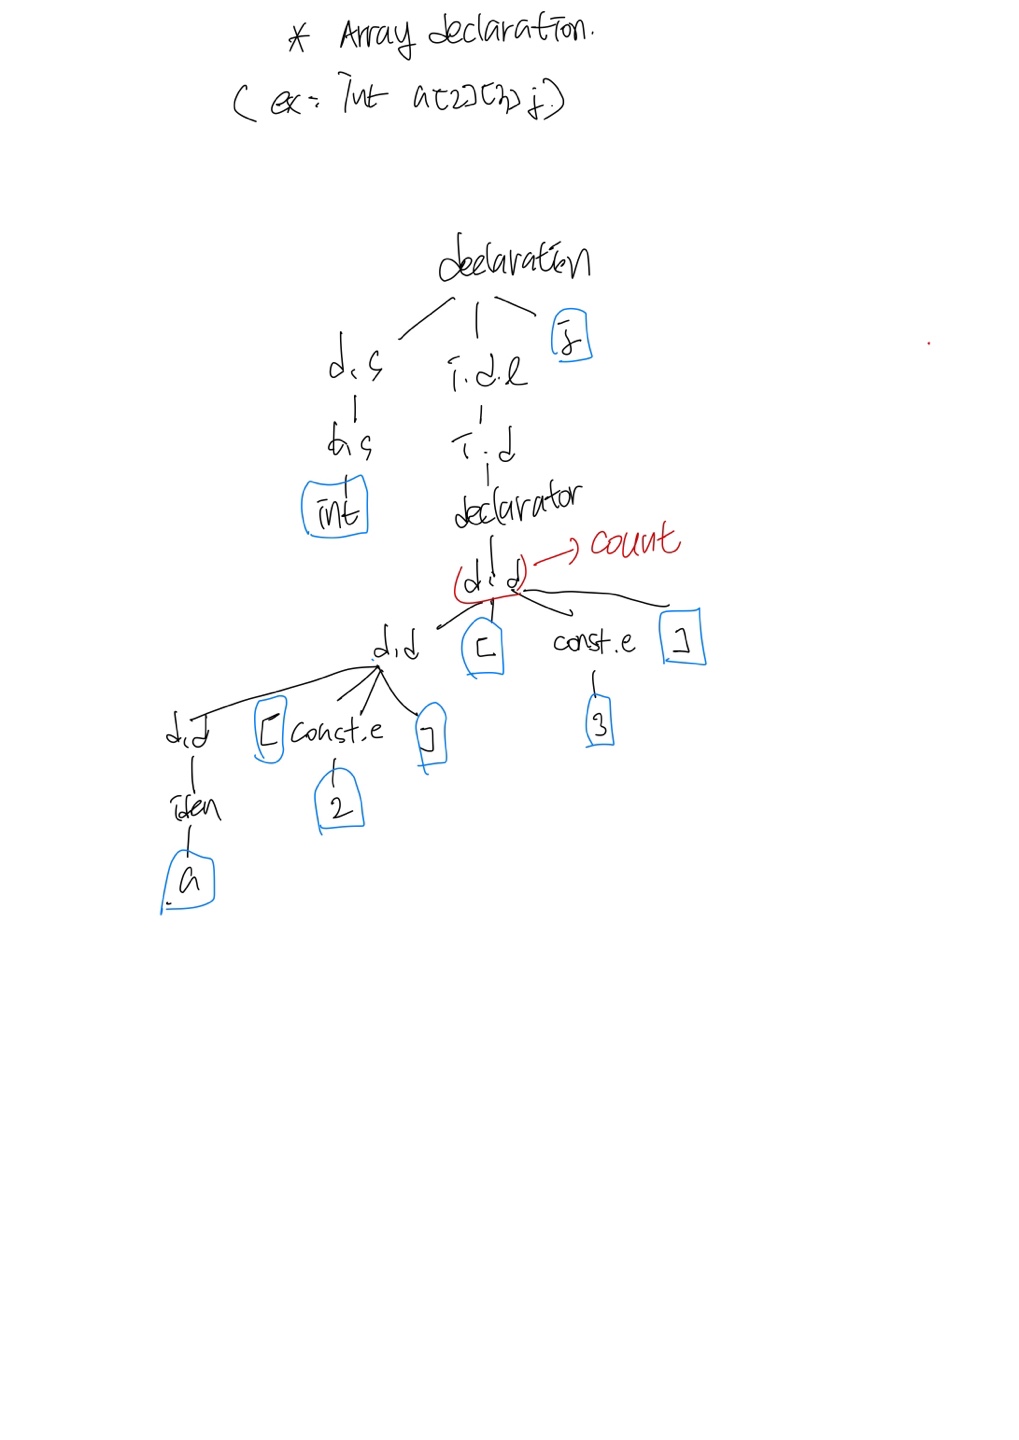 * Array declaration.
( ex: int a[2][3] ; )
declaration
d.s i.d.l ;
i.d
int declarator
d.d → count
d.d [ const.e ]
d.d [ const.e ] 3
iden 2
a